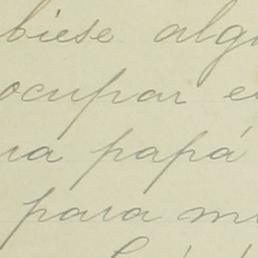 biese alg
ocupar e
ra papá
para m